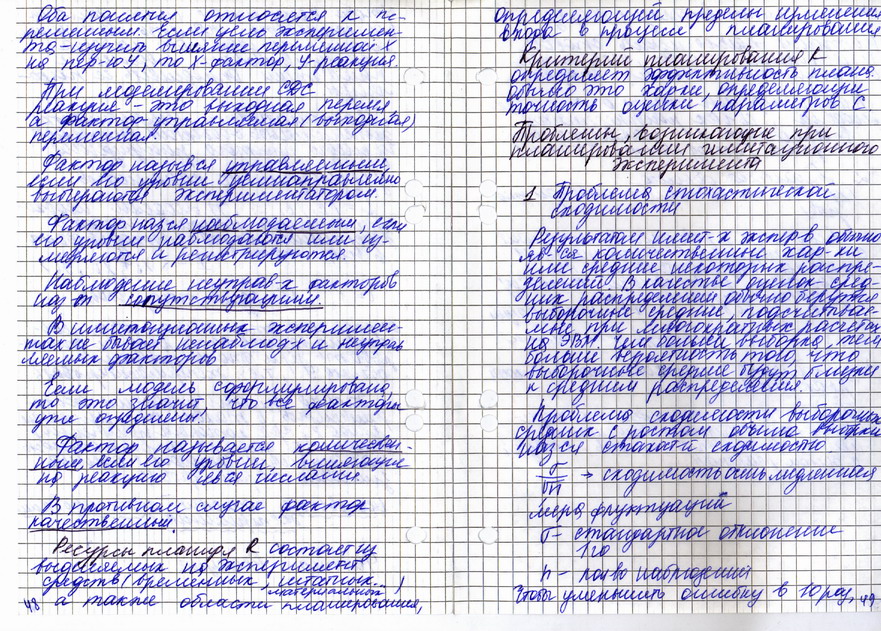 Оба понятия относятся к пе-
ременным. Если цель эксперимен-
та - изучить влияние переменной X
на пер-ю Y, то X-фактор, Y-реакция.
При моделировании СДС
реакция - это выходная перемен
а фактор управляемая (выходная)
переменная.
Фактор назывся управляемым,
если его уровни целинаправленно
выбираются экспериментатором.
Фактор назся наблюдаемым, если
его уровни наблюдаются или из-
меряются и регистрируются.
Наблюдение неуправ-х факторов
наз сопутствующими.
В имитационных эксперимен-
тах не бывает ненаблюд-х и неуправ
ляемых факторов
Если модель сформулирована,
то это значит, что все факторы
уже определены
Фактор называется количествен-
ным если его уровни, влияющие
на реакцию числами.
В противном случае фактор
качественный.
Ресурсы R состоят из
выделяемых на эксперимент
средств (временных, штатных...
материальных)
а также области планирования,
48
определяющей пределы изменения
входа в процессе планирования
Критерий планирования R
определяет эффективность плана
обычно это определяющ
точность оценки параметров С
Проблемы, возникающие при
планировании имитационного
эксперимента
1 Проблема стохастической
сходимости
Результатом имит-х экспер-в обычно
яв-ся количественные хар-ки
или средние некоторых распре-
делений. В качестве оценок сред-
них распределения обычно берутся
выборочные средние, подсчитывае-
мые при многократных расчетах
на ЭВМ. Чем больше выборка, тем
больше вероятность того, что
выборочные средние будут близки
к средним распределения.
Проблема сходимости выборочных
средних с ростом объёма выборки
назся стохастй сходимостью
σ/√n → сходимость очень медленная
мера флуктуаций
σ - стандартное отклонение
1го
n - колво наблюдений
Чтобы уменьшить ошибку в 10 раз,
49